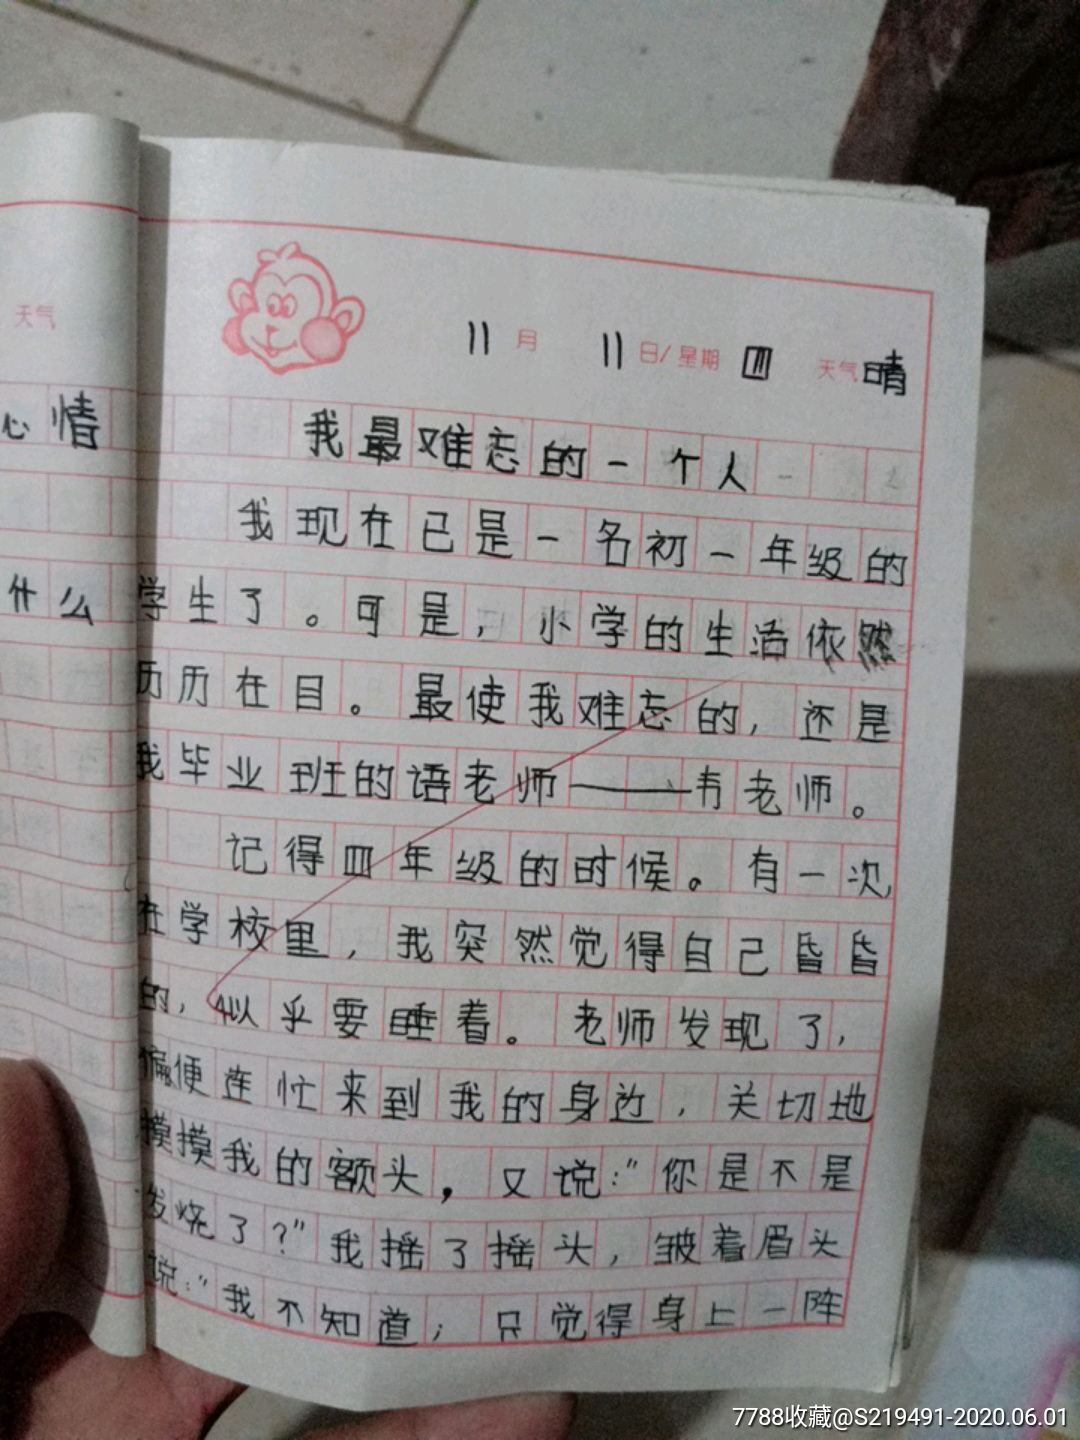 天气
心情
什么
11月 11日/星期四 天气晴
我最难忘的一个人
我现在已是一名初一年级的
学生了。可是，小学的生活依然
历历在目。最使我难忘的，还是
我毕业班的语老师——韦老师。
记得四年级的时候。有一次
在学校里，我突然觉得自己昏昏
的，似乎要睡着。老师发现了，
便连忙来到我的身边，关切地
摸摸我的额头，又说："你是不是
发烧了?"我摇了摇头，皱着眉头
说："我不知道；只觉得身上一阵
7788收藏@S219491-2020.06.01